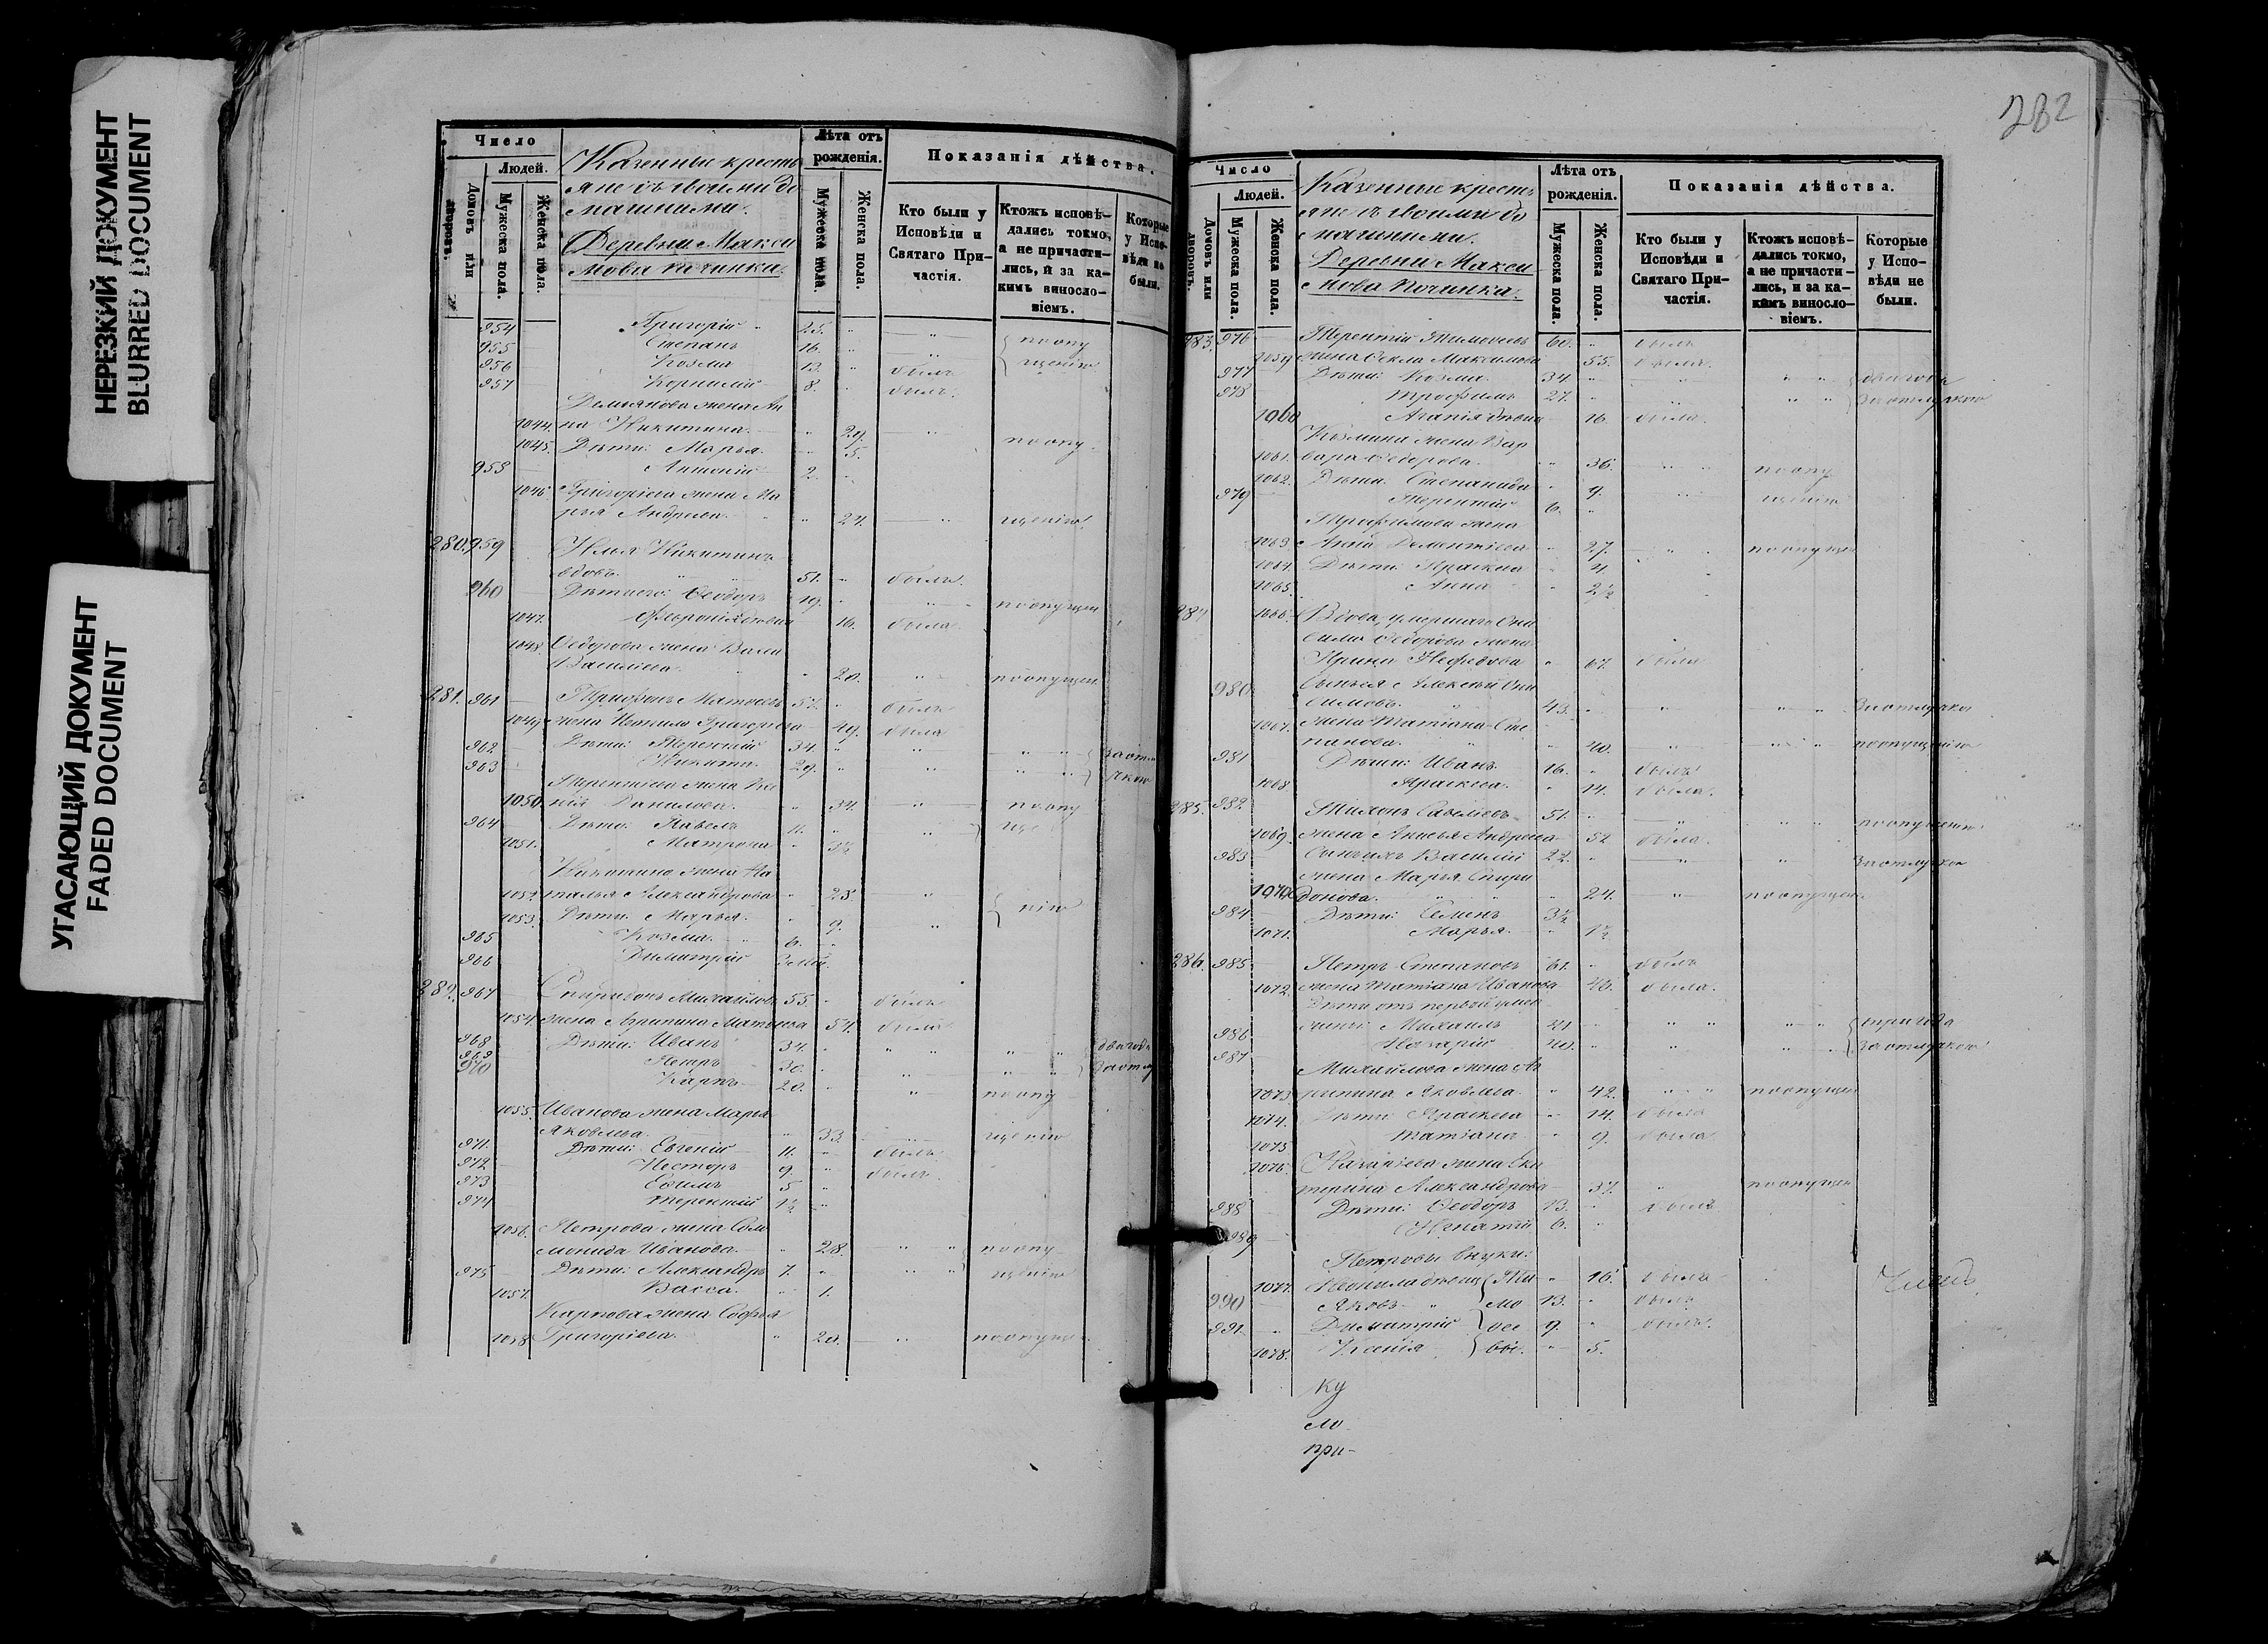 НЕРЕЗКИЙ ДОКУМЕНТ
BLURRED DOCUMENT
УГАСАЮЩИЙ ДОКУМЕНТ
FADED DOCUMENT
Число
Людей.
Домовъ или дворовъ.
Мужеска пола.
Женска пола.
Казенные кресть
яне съ своими до
машними.
Деревни Макси
мова починка.
Лѣта отъ рожденія.
Мужеска пола.
Женска пола.
Показанія дѣйства.
Кто были у Исповѣди и Святаго Причастія.
Ктожъ исповѣдались токмо, а не причастились, и за какимъ винословіемъ.
Которые у Исповѣди не были.
954 Григорій 25.
955 Степанъ 16. по опу
956 Козма 13. былъ щенію
957 Корнилій 8. былъ.
Демьянова жена Ан
1044. на Никитина. 29.
1045. Дѣти: Марья. 5. по опу
958 Антоній 2.
1046. Григоріева жена Ма
рья Андреева. 24. щенію
280. 959 Илья Никитинъ
вдовъ. 51. былъ.
960 Дѣти его: Ѳеодоръ 19. по опущен
1047. 16. была
1048. Ѳедорова жена
Васильева. 20. по опущен
281. 961 Трифонъ Матвѣевъ 57. былъ
1049. жена Григорьева 49. была
962 Дѣти: Терентій 34. за отлу
963 Никита. 29. чкою
Терентьева жена Ксе
1050. нія Данилова. 34. по опу
964 Дѣти: Павелъ 11. ще
1051. Матрона 3½
Никитина жена На
1052. талья Александрова 23.
1053. Дѣти: Марья. 9. нію
965 Козма. 6.
966 Димитрій
282. 967 Спиридонъ Михайловъ 55. былъ
1054. жена Агрипина Матвѣева 54. была
968 Дѣти: Иванъ 34. два года
969 Петръ 30. за отлу
970 Карпъ 20. по опу
1055. Иванова жена Марья
Яковлева. 33. щенію
971. Дѣти: Евгеній 11. былъ
972 Несторъ 9. былъ
973 Ефимъ 5
974 Терентій 1½
1056. Петрова жена Соло
монида Иванова. 28. по опу
975 Дѣти: Александръ 7. щенію
1057. Васса. 1.
Карпова жена Софья
1058 Григоріева. 20. по опущен.
282
Число
Людей.
Домовъ или дворовъ.
Мужеска пола.
Женска пола.
Казенные кресть
яне съ своими до
машними.
Деревни Макси
мова починка.
Лѣта отъ рожденія.
Мужеска пола.
Женска пола.
Показанія дѣйства.
Кто были у Исповѣди и Святаго Причастія.
Ктожъ исповѣдались токмо, а не причастились, и за какимъ винословіемъ.
Которые у Исповѣди не были.
283. 976 Терентій Тимоѳеевъ 60. былъ
1059 жена Ѳекла Максимова 55. была.
977 Дѣти: Козма. 34. два года
978 Трофимъ 27. за отлучкою
1060 Агапія дѣвица 16. была.
Козмина жена Вар
1061. вара Ѳедорова. 36. по опу
1062. Дѣти: Степанида 9. щенію
979 Терентій 6.
Трофимова жена
1063. Анна Дементьева 27. по опущен
1064. Дѣти: Праскева 4.
1065. Анна 2½
284 1066. Вдова, умершаго Они
сима Ѳедорова жена
Ирина Нефедова 67. была
980 Сынъ ея Алексѣй Они
симовъ. 43. за отлучкою
1067. жена Татіана Сте
панова. 40. по опущенію
981 Дѣти: Иванъ 16. былъ
1068 Праскева. 14. была.
285. 982. Тихонъ Савельевъ 51. по опущенію
1069. жена Анисья Андреева 52 была.
983 Сынъ ихъ Василій 22. за отлучкою
жена Марья Спири
1070 донова. 24. по опущен.
984 Дѣти: Семенъ 3½
1071. Марья. 1½
286. 985 Петръ Степановъ 61. былъ
1072. жена Татіана Иванова 46. была.
Дѣти отъ первой умер
986 шей: Михаилъ 41 три года
987 Назарій 40. за отлучкою
Михайлова жена Аг
1073 рипина Яковлева. 42. по опущен
1074. Дѣти: Праскева 14. была
1075 Татіана 9. была
1076. Назаріева жена Ека
терина Александрова 37. по опущен
988 Дѣти: Ѳеодоръ 13. былъ
989 Игнатій 6.
Петровы внуки:
1077. Неонила дѣвица Ти 16. была
990 Яковъ мо 13. былъ
991 Димитрій ѳее 9. былъ.
1078. Ксенія вы. 5.
ку
ло
при-